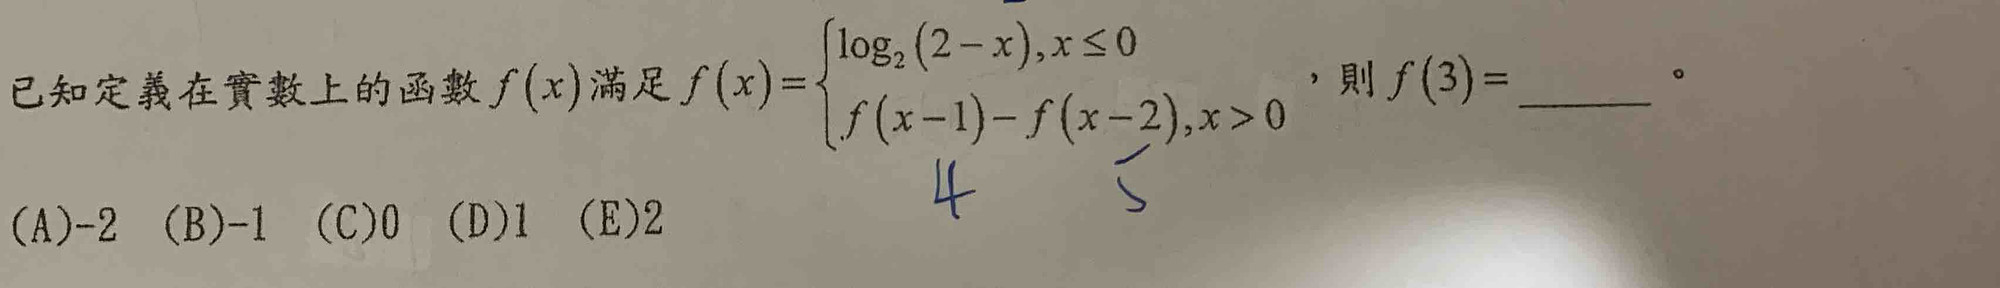 已知定義在實數上的函數 f(x) 滿足 f(x) = { log₂(2−x), x ≤ 0
f(x−1)−f(x−2), x > 0 ，則 f(3) = ______ 。
4 5
(A)-2 (B)-1 (C)0 (D)1 (E)2